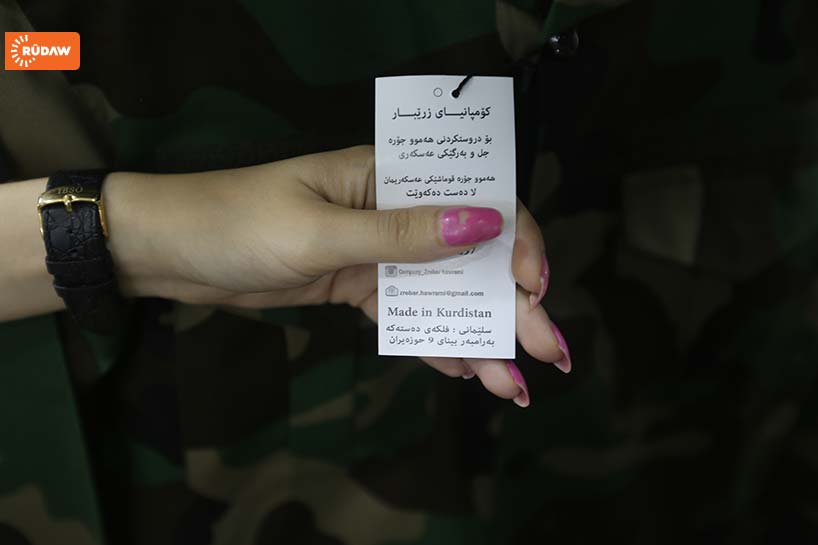 RÛDAW
کۆمپانیـــای زرێبـــار
بۆ دروستکردنی هەموو جۆرە
جل و بەرگێکی عەسکەری
هەموو جۆرە قوماشێکی عەسکەریمان
لا دەست دەکەوێت
Company_Zrebar hawrami
zrebar.hawrami@gmail.com
Made in Kurdistan
سلێمانی : فلکەی دەستەکە
بەرامبەر بینای 9 حوزەیران